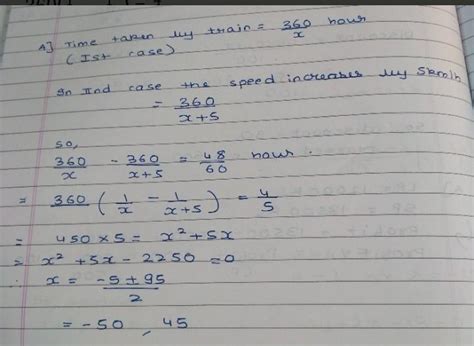 A] Time taken by train = 360/x hour
(Ist case)
In IInd case the speed increases by 5km/h
= 360/x+5
So,
360/x - 360/x+5 = 48/60 hour.
= 360 ( 1/x - 1/x+5 ) = 4/5
= 450 × 5 = x² + 5x
= x² + 5x - 2250 = 0
∴ x = -5 ± 95/2
= -50 , 45